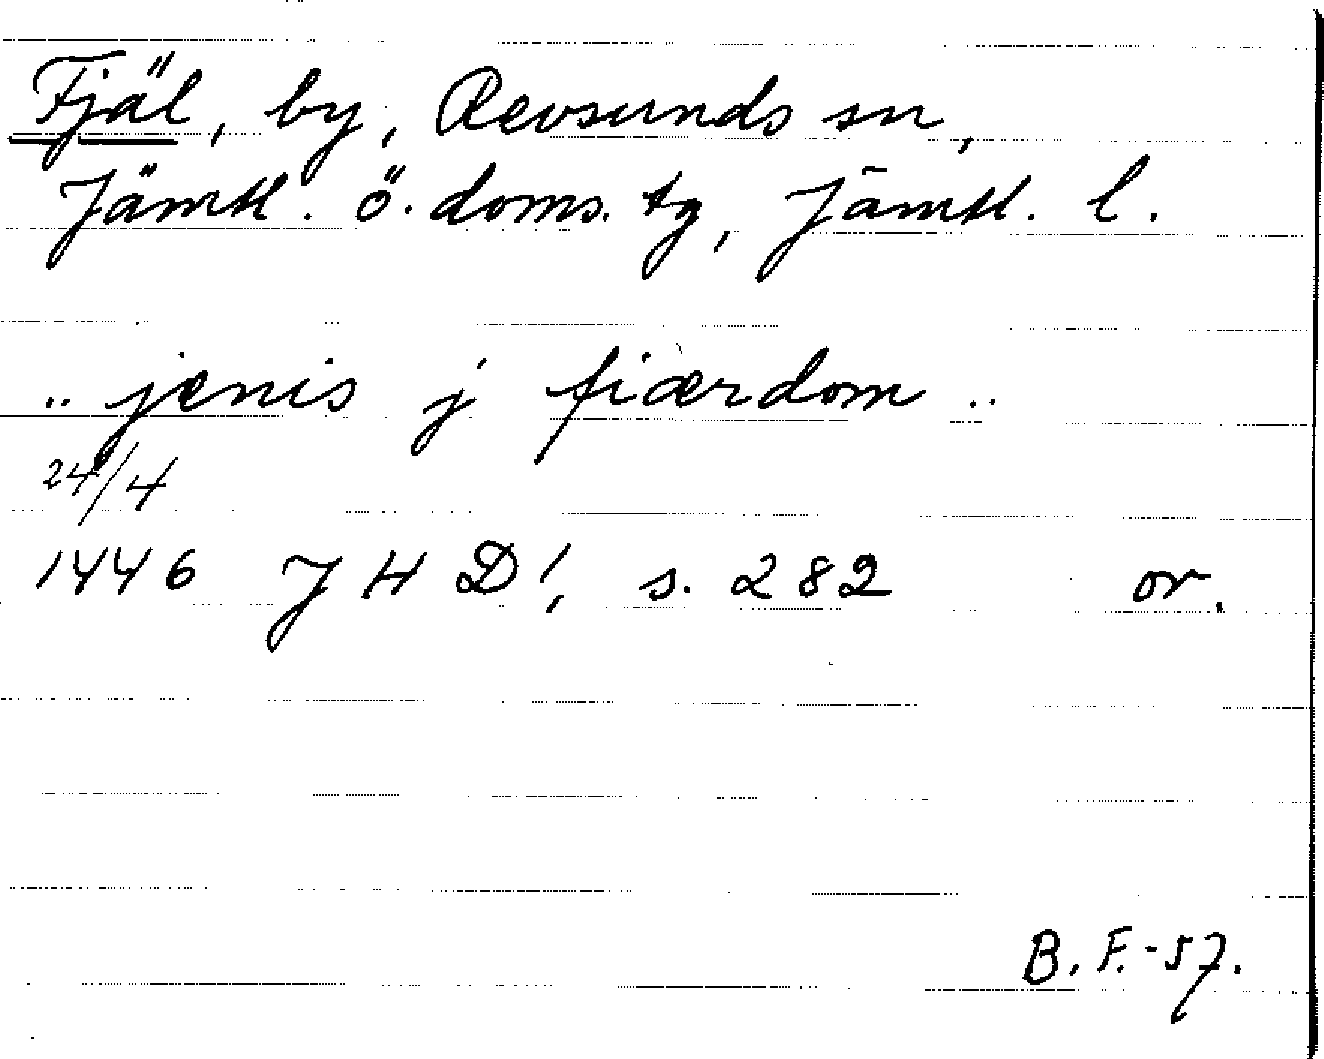 Fjäl, by, Revsunds sn,
Jämtl. ö. doms. tg, Jämtl. l.
.. jenis j fiærdom ..
24/4
1446 J H D 1, s. 282 or.
B. F. - 57.